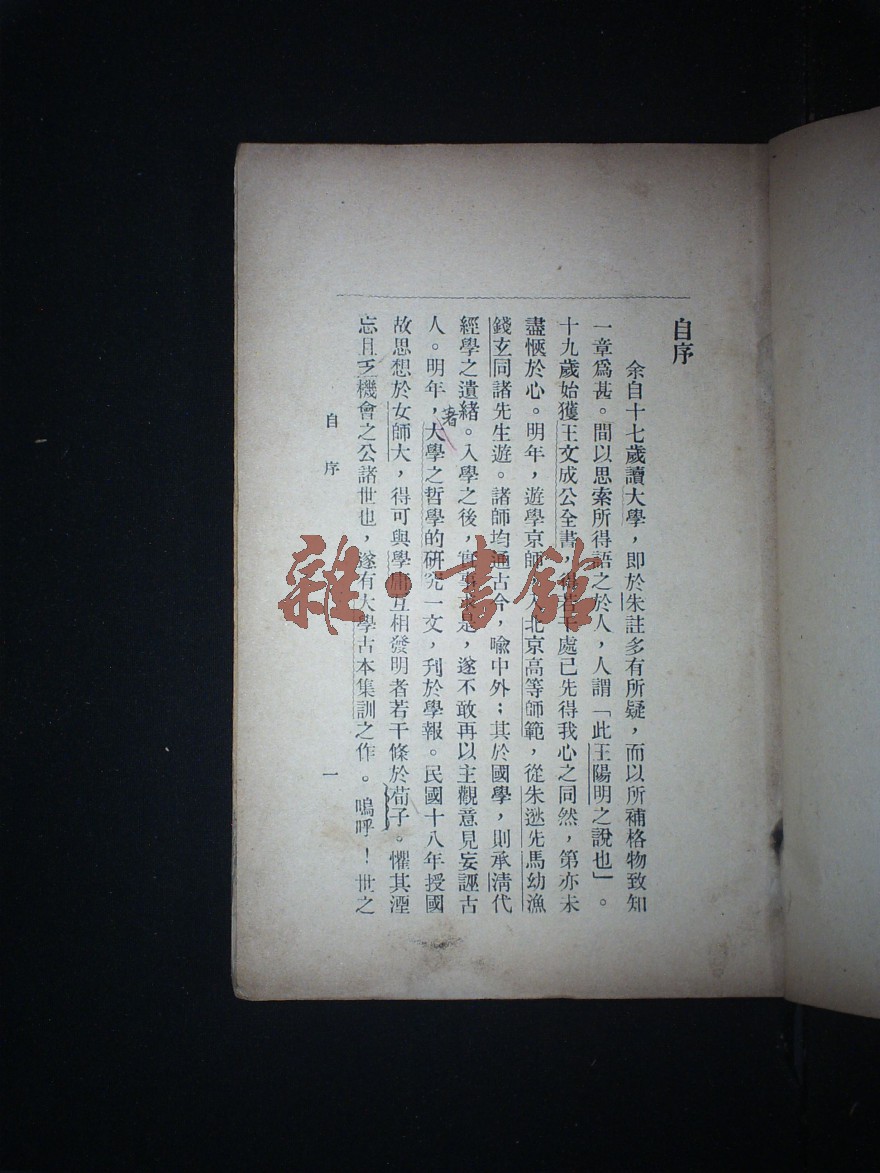 自序
余自十七歲讀大學，即於朱註多有所疑，而以所補格物致知
一章爲甚。間以思索所得語之於人，人謂「此王陽明之說也」。
十九歲始獲王文成公全書，處已先得我心之同然，第亦未
盡愜於心。明年，遊學京師，入北京高等師範，從朱逖先馬幼漁
錢玄同諸先生遊。諸師均通古今，喩中外；其於國學，則承清代
經學之遺緒。入學之後，是，遂不敢再以主觀意見妄誣古
人。明年，著大學之哲學的研究一文，刋於學報。民國十八年授國
故思想於女師大，得可與學庸互相發明者若干條於荀子。懼其湮
忘且乏機會之公諸世也，遂有大學古本集訓之作。嗚呼！世之
自序
一
雜·書館